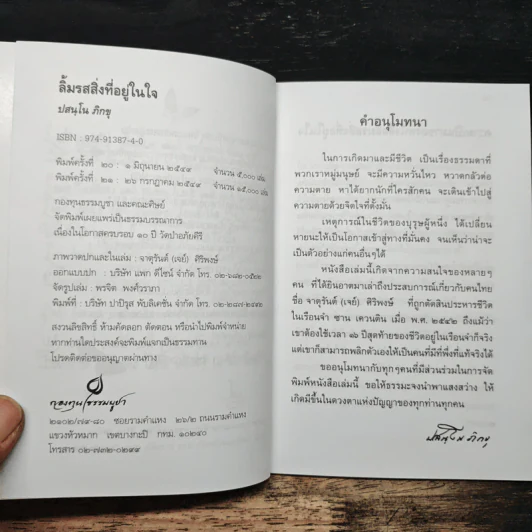 ลิ้มรสสิ่งที่อยู่ในใจ
ปสนฺโน ภิกขุ
ISBN : 974-91387-4-0
พิมพ์ครั้งที่ ๒๐ : ๑ มิถุนายน ๒๕๔๙ จำนวน ๕,๐๐๐ เล่ม
พิมพ์ครั้งที่ ๒๑ : ๒๖ กรกฎาคม ๒๕๔๙ จำนวน ๑๕,๐๐๐ เล่ม
กองทุนธรรมบูชา และคณะศิษย์
จัดพิมพ์เผยแพร่เป็นธรรมบรรณาการ
เนื่องในโอกาสครบรอบ ๑๐ ปี วัดป่าอภัยคีรี
ภาพวาดปกและในเล่ม : จาตุรันต์ (เจย์) ศิริพงษ์
ออกแบบปก : บริษัท แพก ดีไซน์ จำกัด โทร. ๐๒-๖๘๒-๐๕๒๒
จัดรูปเล่ม : พรจิต พงศ์วราภา
พิมพ์ที่ : บริษัท ปาปิรุส พับลิเคชั่น จำกัด โทร. ๐๒-๒๘๗-๒๔๙๒
สงวนลิขสิทธิ์ ห้ามคัดลอก ตัดตอน หรือนำไปพิมพ์จำหน่าย
หากท่านใดประสงค์จะพิมพ์แจกเป็นธรรมทาน
โปรดติดต่อขออนุญาตผ่านทาง
กองทุนธรรมบูชา
๒๑๐๒/๗๙-๘๐ ซอยรามคำแหง ๒๖/๒ ถนนรามคำแหง
แขวงหัวหมาก เขตบางกะปิ กทม. ๑๐๒๔๐
โทรสาร ๐๒-๗๓๒-๐๒๙๙
คำอนุโมทนา
ในการเกิดมาและมีชีวิต เป็นเรื่องธรรมดาที่
พวกเราหมู่มนุษย์ จะมีความหวั่นไหว หวาดกลัวต่อ
ความตาย หาได้ยากนักที่ใครสักคน จะเดินเข้าไปสู่
ความตายด้วยจิตใจที่ตั้งมั่น
เหตุการณ์ในชีวิตของบุรุษผู้หนึ่ง ได้เปลี่ยน
หายนะให้เป็นโอกาสเข้าสู่ทางที่มั่นคง จนเห็นว่าน่าจะ
เป็นตัวอย่างแก่คนอื่นๆได้
หนังสือเล่มนี้เกิดจากความสนใจของหลายๆ
คน ที่ได้ยินอาตมาเล่าถึงประสบการณ์เกี่ยวกับคนไทย
ชื่อ จาตุรันต์ (เจย์) ศิริพงษ์ ที่ถูกตัดสินประหารชีวิต
ในเรือนจำ ซาน เควนติน เมื่อ พ.ศ. ๒๕๔๒ ถึงแม้ว่า
เขาต้องใช้เวลา ๑๖ ปีสุดท้ายของชีวิตอยู่ในเรือนจำก็จริง
แต่เขาก็สามารถพลิกตัวเองให้เป็นคนที่มีที่พึ่งที่แท้จริงได้
ขออนุโมทนากับทุกๆคนที่มีส่วนร่วมในการจัด
พิมพ์หนังสือเล่มนี้ ขอให้ธรรมะจงนำพาแสงสว่าง ให้
เกิดมีขึ้นในดวงตาแห่งปัญญาของทุกท่านทุกคน
ปสนฺโน ภิกขุ